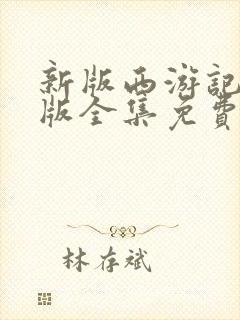 新版西游記
版全集免費
林存斌